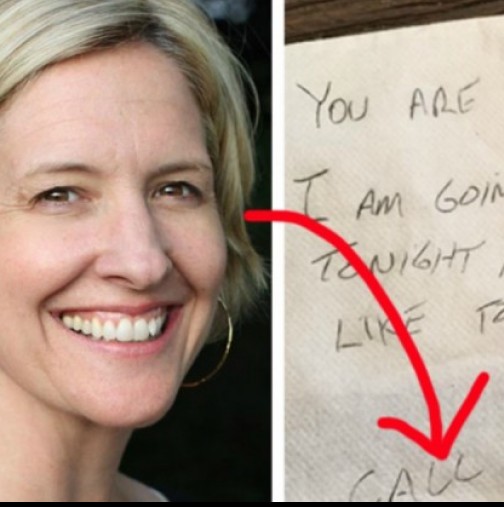 YOU ARE
I AM GOIN
TONIGHT
LIKE TO
CALL